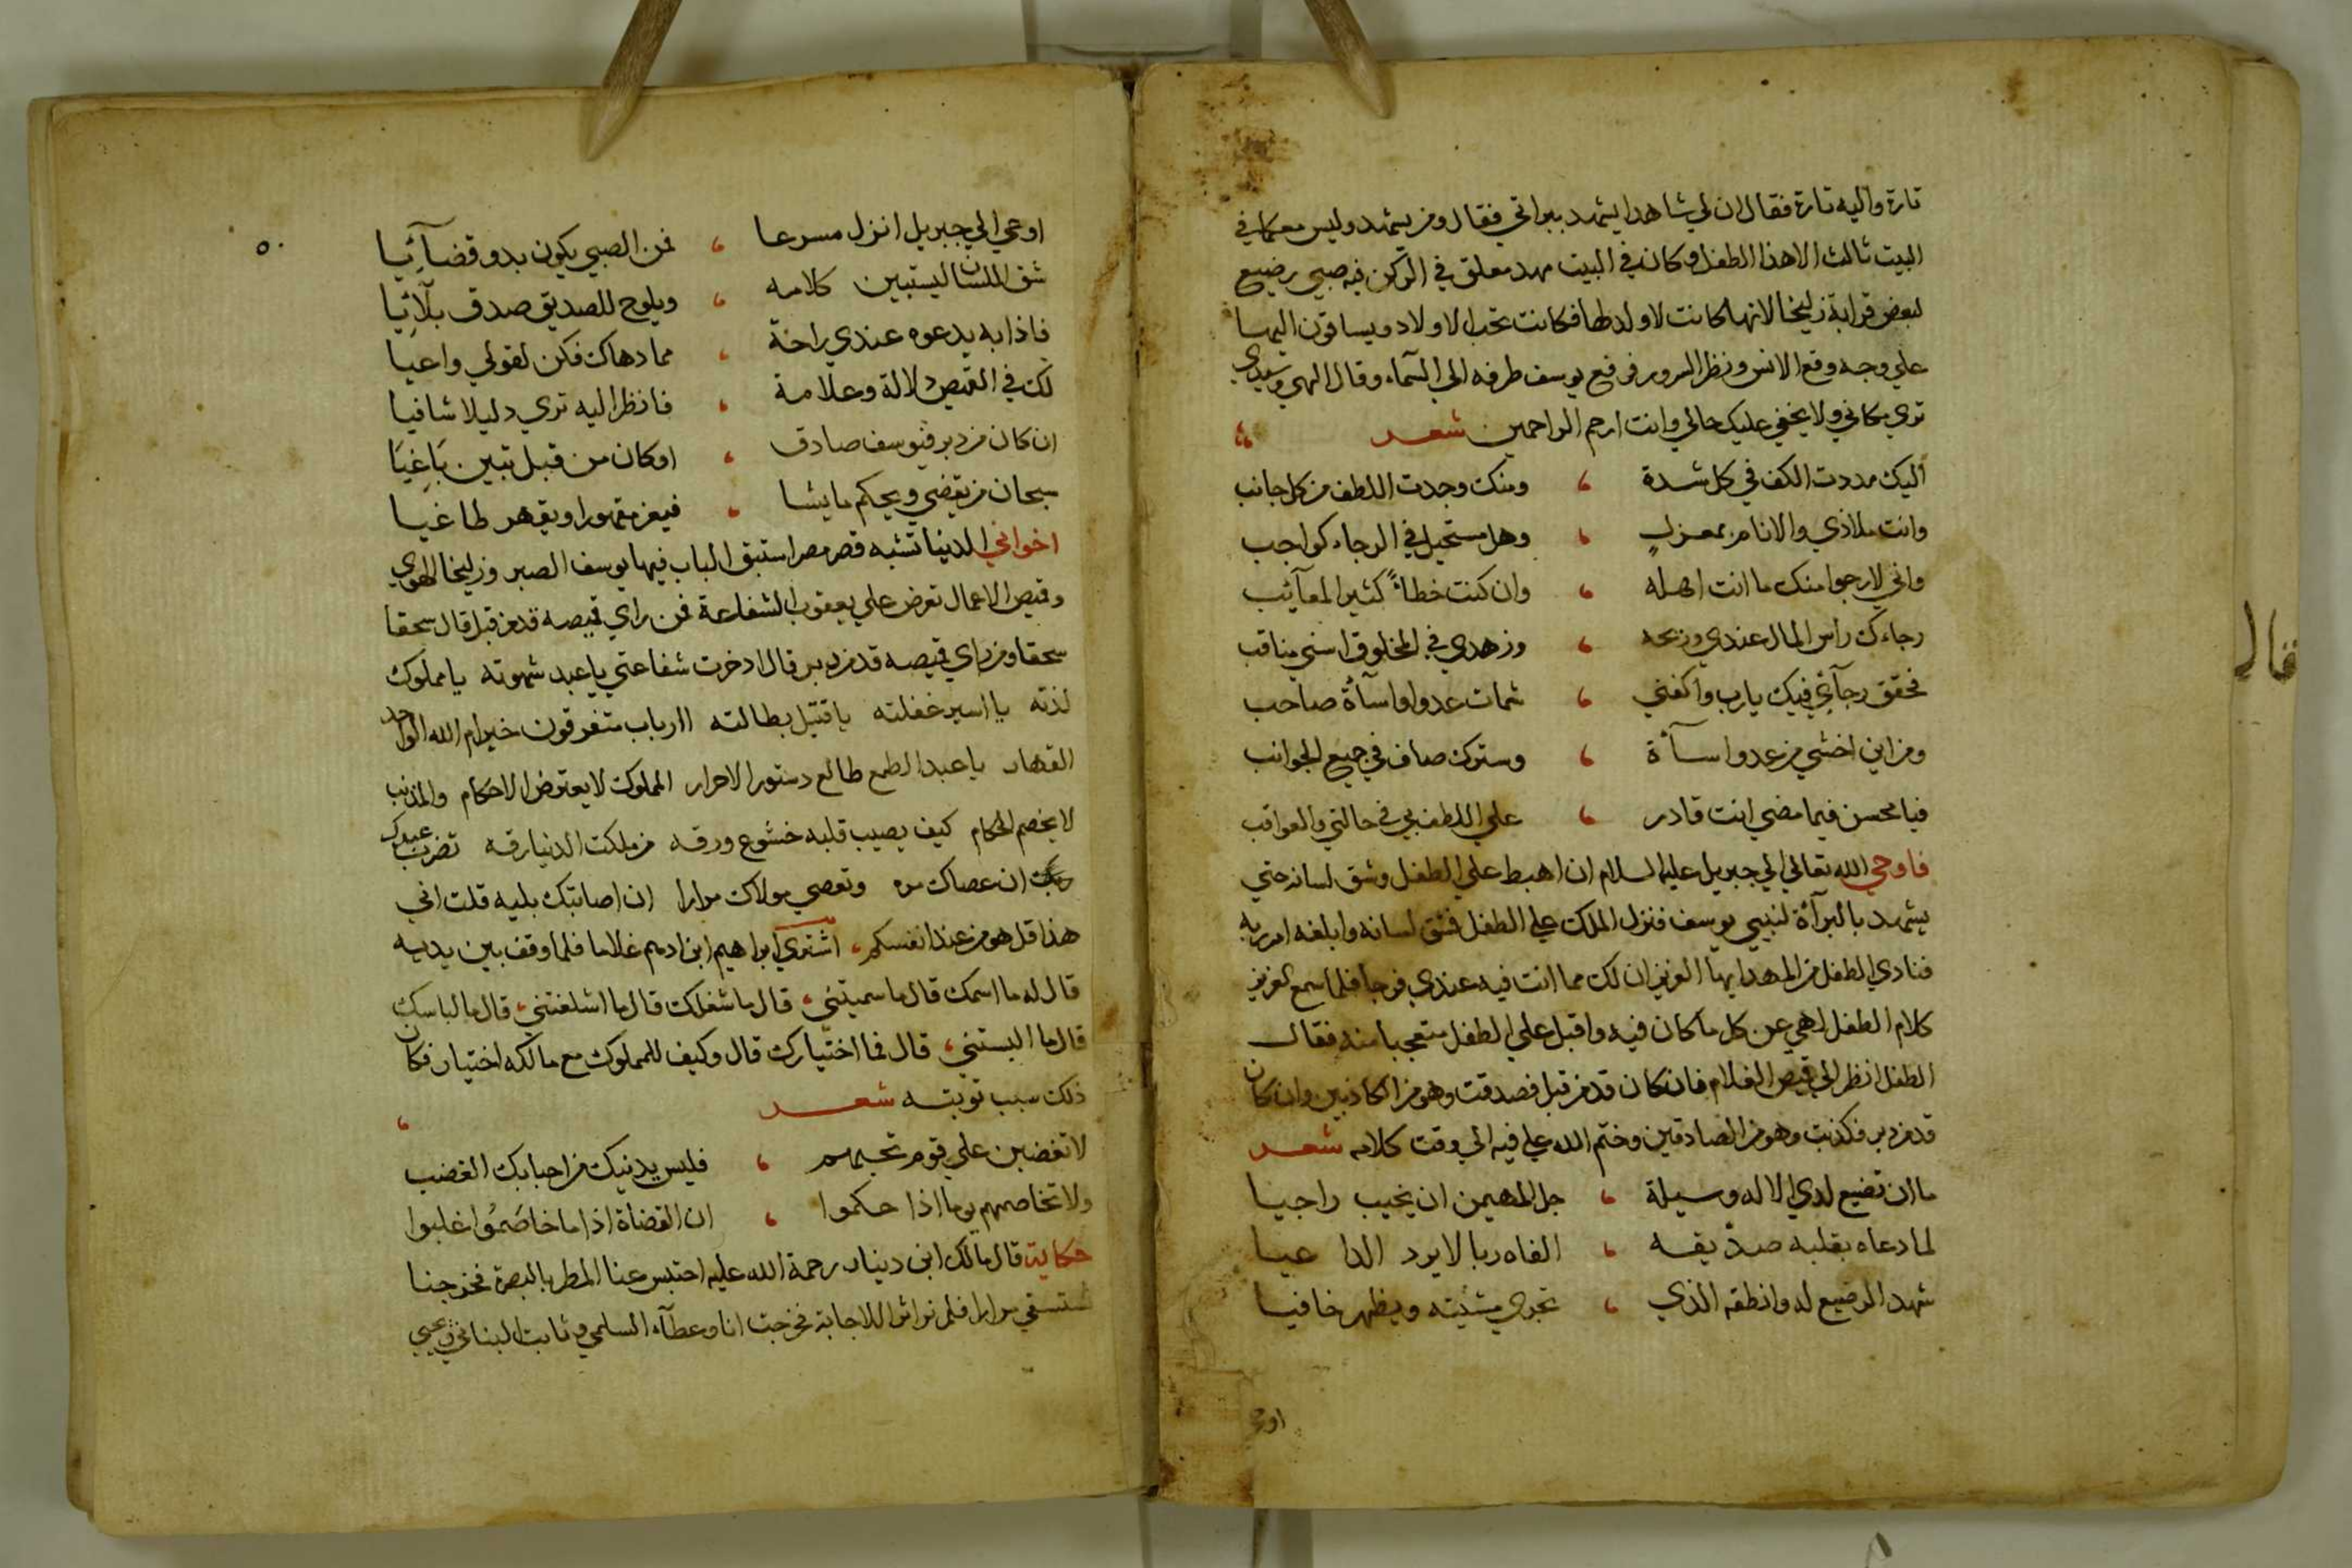 تارة واليه تارة فقال ان لي شاهدا يشهد ببراتي فقال ومن يشهد وليس معكما في
البيت ثالث الا هذا الطفل وكان في البيت مهد معلق في الركن فيه صبي رضيع
لبعض قرابة زليخا لانها كانت لا ولد لها فكانت تحب الاولاد ويساقون اليها
علي وجه وقع الانس ونظر السرور فرفع يوسف طرفه الي السماء وقال الهي وسيدي
تري مكاني ولا يخفي عليك حالي وانت ارحم الراحمين شعر
اليك مددت الكف في كل شدة ، ومنك وجدت اللطف من كل جانب
وانت ملاذي والانام بمعزل ، وهل مستحيل في الرجاء كواجب
واني لارجوا منك ما انت اهله ، وان كنت خطاءً كثير المعآئب
رجاءك راس المال عندي وربحه ، وزهدي في المخلوق اسني مناقب
فحقق رجآئي فيك يارب واكفني ، شمات عدوا واسآة صاحب
ومن اين اخشي من عدوا سآة ، وسترك صاف في جميع الجوانب
فيا محسن فيما مضي انت قادر ، علي اللطف بي في حالتي والعواقب
فاوحي الله تعالي الي جبريل عليه السلام ان اهبط علي الطفل وشق لسانه حتي
يشهد بالبرآة لنبيي يوسف فنزل الملك علي الطفل فشق لسانه وابلغه امر ربه
فنادي الطفل من المهد ايها العزيز ان لك مما انت فيه عندي فرجا فلما سمع العزيز
كلام الطفل لهي عن كل ما كان فيه واقبل علي الطفل متعجبا منه فقال
الطفل انظر الي قميص الغلام فان كان قد من قبل فصدقت وهو من الكاذبين وان كان
قد من دبر فكذبت وهو من الصادقين وختم الله علي فيه الي وقت كلامه شعر
ما ان تضيع لدي الاله وسيلة ، جل المهيمن ان يخيب راجيا
لما دعاه بقلبه صدّيقه ، الفاه ربا لا يرد الداعيا
شهد الرضيع له وانطقه الذي ، تجري مشئته ويظهر خافيا
اوحي
٥٠
اوحي الي جبريل انزل مسرعا ، فمن الصبي يكون بدو قضآئيا
شق اللسان ليستبين كلامه ، ويلوح للصديق صدق بلآئيا
فاذا به يدعوه عندي راحة ، مما دهاك فكن لقولي واعيا
لك في القميص دلالة وعلامة ، فانظر اليه تري دليلا شافيا
ان كان من دبر فيوسف صادق ، او كان من قبل تبين باغيا
سبحان من يقضي ويحكم ما يشا ، فيعز مقهورا ويقهر طاغيا
اخواني الدنيا تشبه قصر مصر استبق الباب فيها يوسف الصبر وزليخا الهوي
وقميص الاعمال تعرض علي يعقوب الشفاعة فمن راي قميصه قد من قبل قال سحقا
سحقا ومن راي قميصه قد من دبر قال ادخرت شفاعتي يا عبد شهوته يا مملوك
لذته يا اسير غفلته يا قتيل بطالته اارباب متفرقون خير ام الله الواحد
القهار يا عبد الطمع طالع دستور الاحرار المملوك لا يعترض الاحكام والمذنب
لا يخصم الحكام كيف يصيب قلبه خشوع ورقه من ملكت الدنيا رقه تضرب عبدك
ان عصاك مره وتعصي مولاك مرارا ان اصابتك بليه قلت اني
هذا قل هو من عند انفسكم ، اشتري ابراهيم ابن ادهم غلاما فلما وقف بين يديه
قال له ما اسمك قال ما سميتني ، قال ما شغلك قال ما اشلغتني ، قال ما لباسك
قال ما البستني ، قال فما اختيارك قال وكيف للمملوك مع مالكه اختيار فكان
ذلك سبب توبته شعر ،
لا تغضبن علي قوم تحبهم ، فليس يدنيك من احبابك الغضب
ولا تخاصمهم يوما اذا حكموا ، ان القضاة اذا ما خاصَمُوا غلبوا
حكاية قال مالك ابن دينار رحمة الله عليه احتبس عنا المطر بالبصرة فخرجنا
نستسقي مرارا فلم نر اثرا للاجابة فخرجت انا وعطآء السلمي وثابت البناني ويحيي
قال